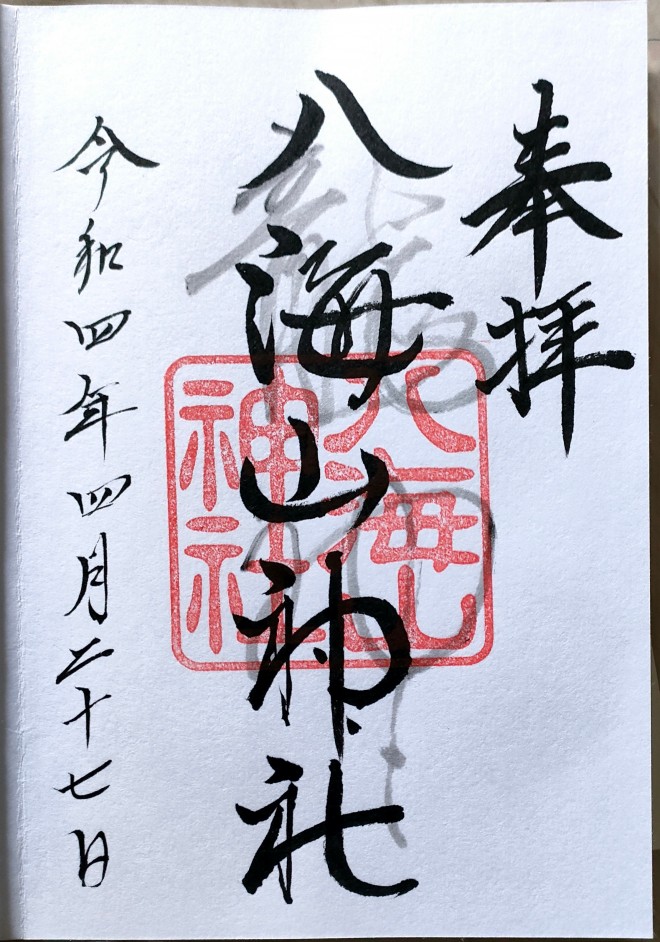 奉拝
八海山神社
八海山
神社
令和四年四月二十七日